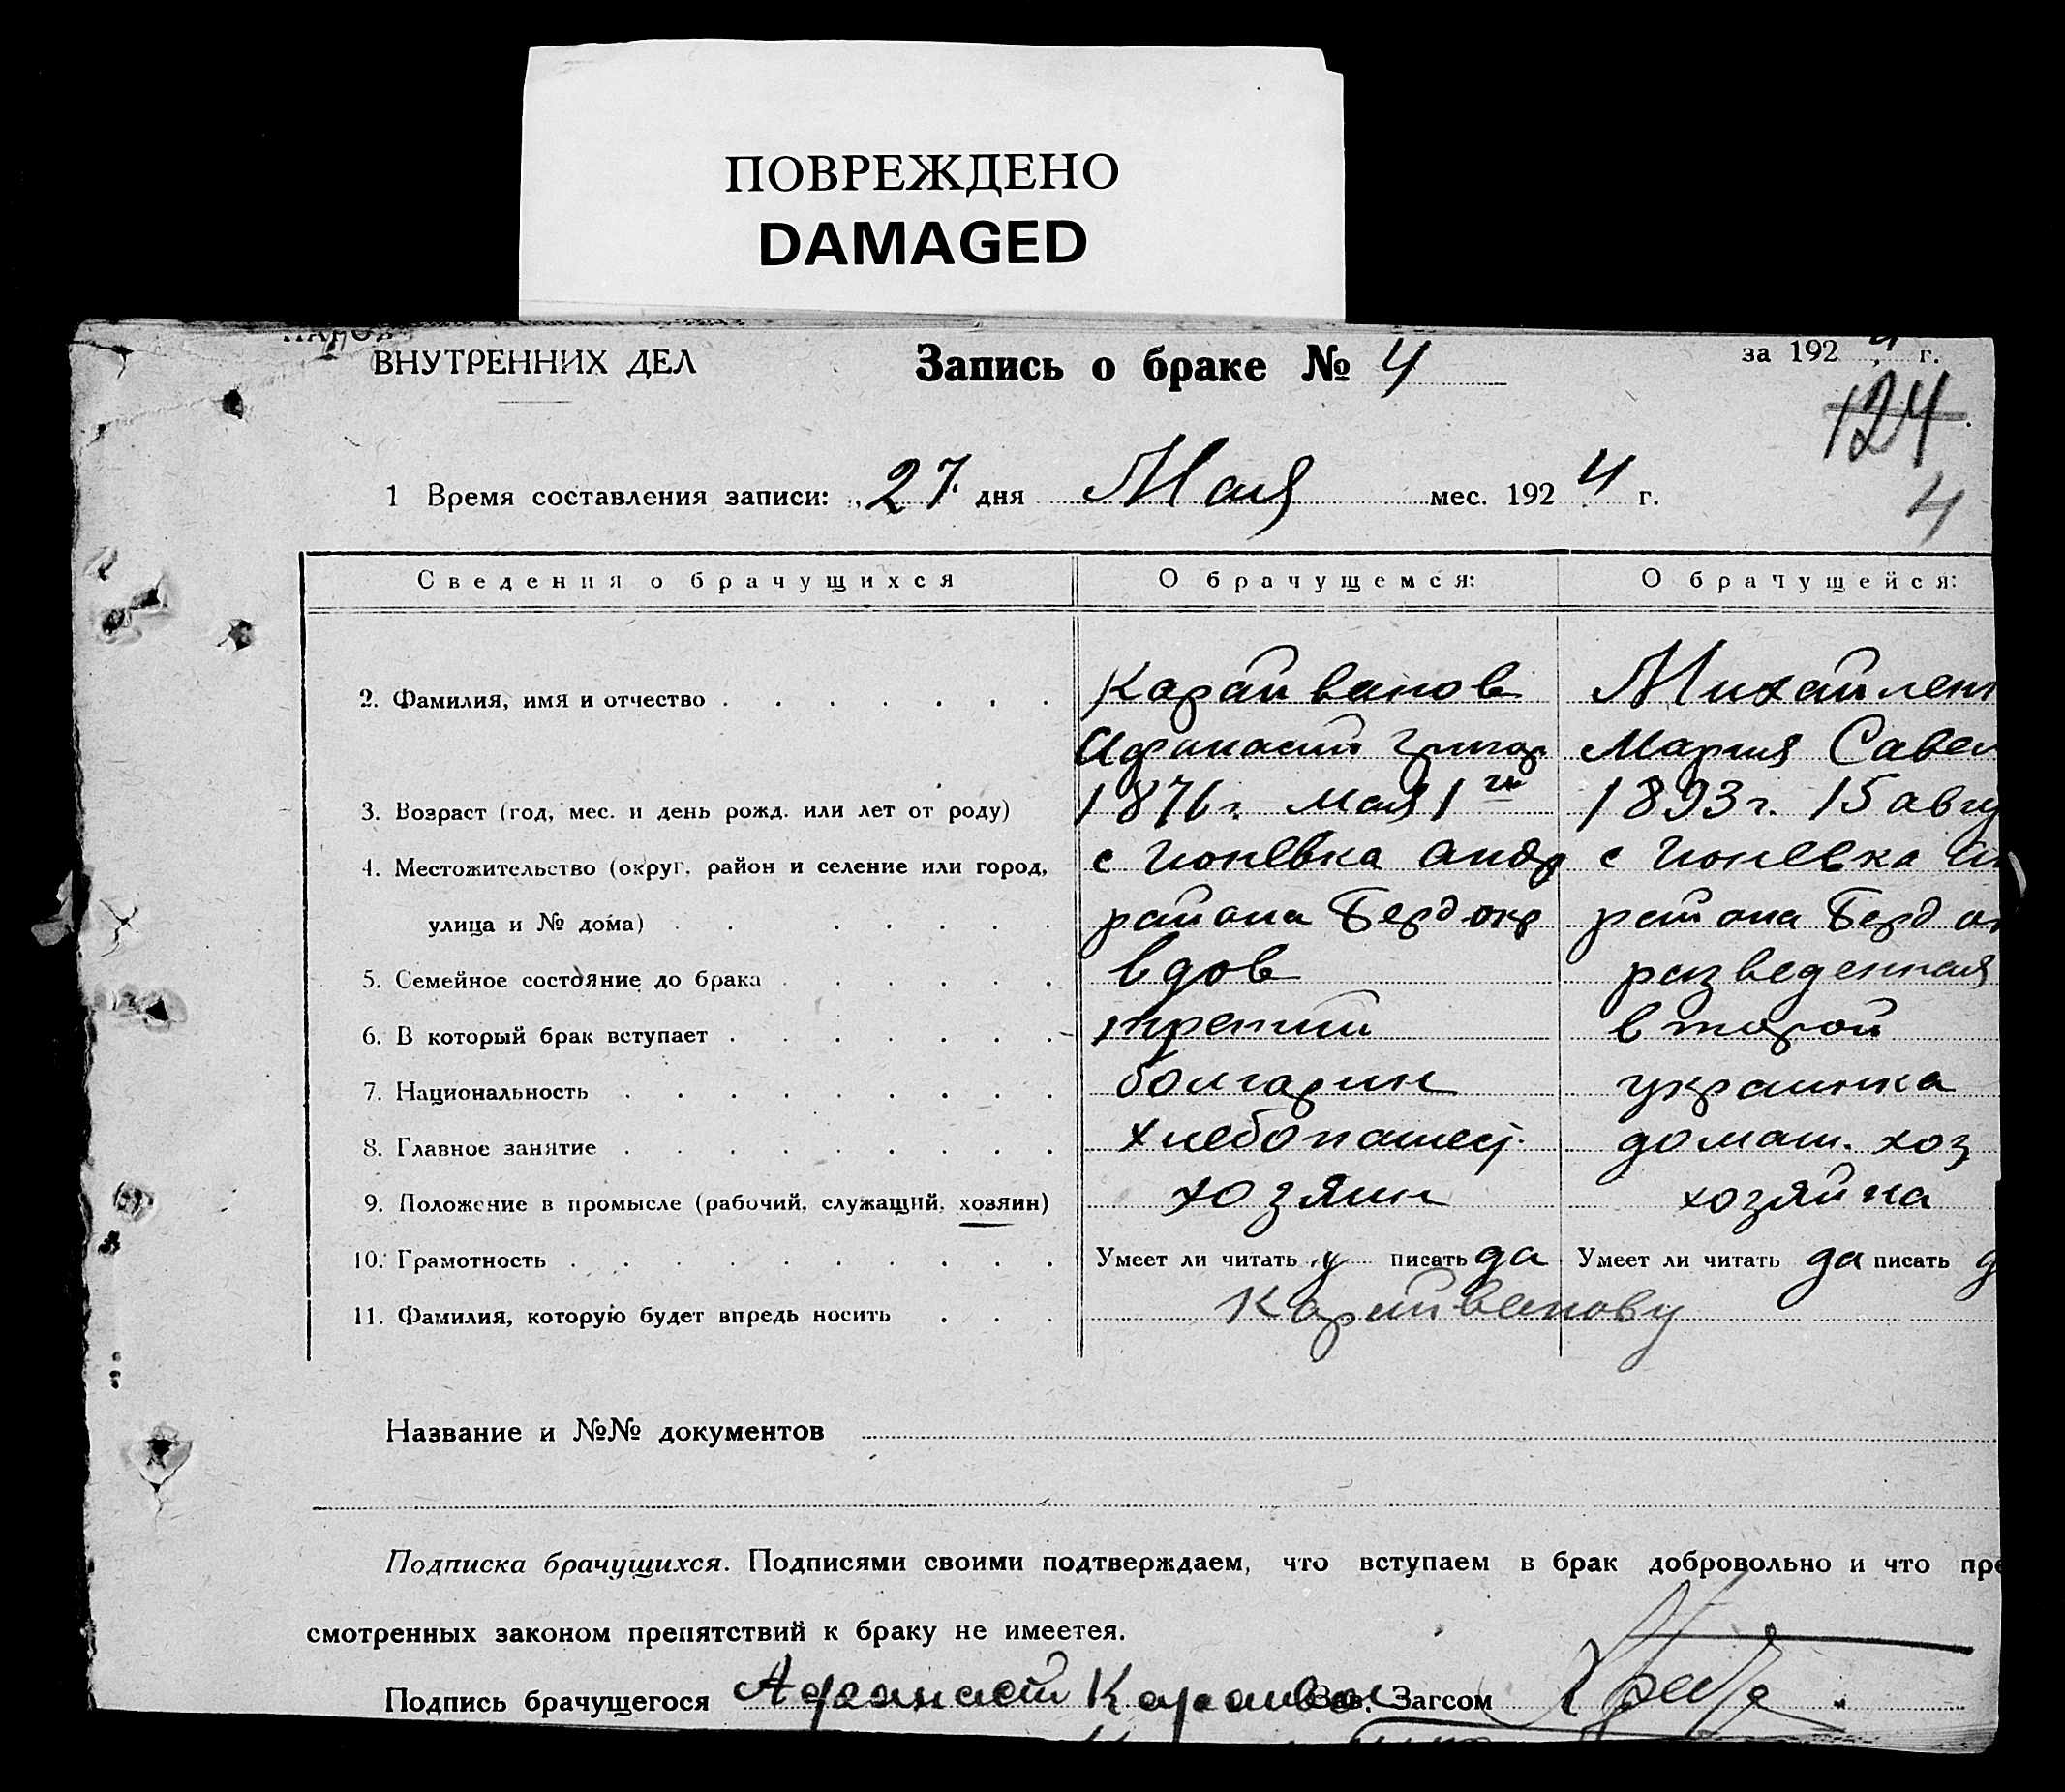 ПОВРЕЖДЕНО
DAMAGED
ВНУТРЕННИХ ДЕЛ
Запись о браке № 4
за 1924 г.
124
4
1 Время составления записи: 27 дня Мая мес. 1924 г.
Сведения о брачущихся О брачущемся: О брачущейся:
2. Фамилия, имя и отчество Карайванов Михайлен
Афанасий Григор Мария Савел
3. Возраст (год, мес. и день рожд. или лет от роду) 1876 г. мая 1го 1893 г. 15 авгу
4. Местожительство (округ, район и селение или город, с Гюневка Андр с Гюневка
улица и № дома) района Берд окр района Берд ок
5. Семейное состояние до брака вдов разведенная
6. В который брак вступает третий второй
7. Национальность болгарин украинка
8. Главное занятие хлебопашец домаш. хоз
9. Положение в промысле (рабочий, служащий, хозяин) хозяин хозяйка
10. Грамотность Умеет ли читать писать да Умеет ли читать да писать д
11. Фамилия, которую будет впредь носить Карайванову
Название и №№ документов
Подписка брачущихся. Подписями своими подтверждаем, что вступаем в брак добровольно и что пре
смотренных законом препятствий к браку не имеетея.
Подпись брачущегося Афанасий Карайва Зав. Загсом